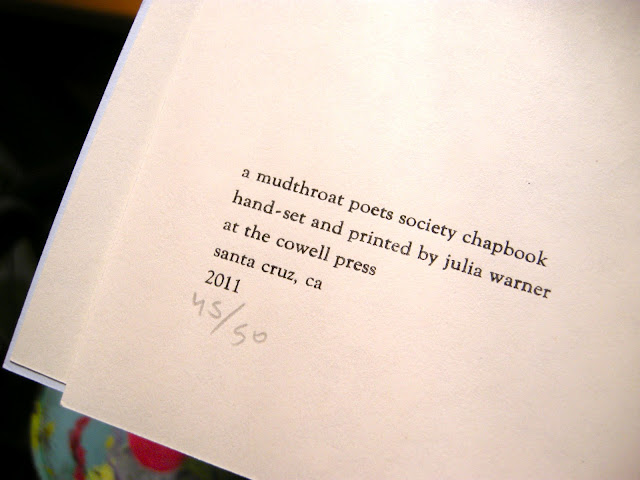 a mudthroat poets society chapbook
hand-set and printed by julia warner
at the cowell press
santa cruz, ca
2011
45/50